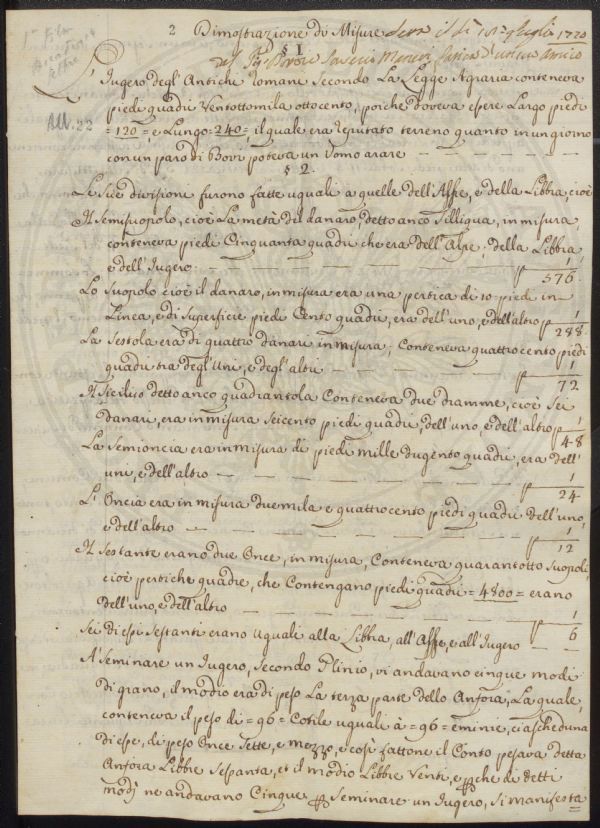 2 Dimostrazione di Misure
1720
§ 1
L'Iugero degl'Antichi Romani secondo La Legge Agraria conteneva
piedi quadri Ventottomila ottocento, poiche doveva essere Largo piedi
=120=, e Lungo=240=, il quale era reputato terreno quanto in un giorno
con un paro di Bovi poteva un Uomo arare
All. 22
§ 2.
Le sue divisioni furono fatte uguali a quelle dell'Asse, e della Libbra, cioè
Il Semisuopolo, cioè La metà del danaro, detto anco Silliqua, in misura,
conteneva piedi Cinquanta quadri che era dell'Asse, della Libbra,
e dell'Iugero p 1/576
Lo Suopolo cioè il danaro, in misura era una pertica di 10 piedi in
Linea, e di superficie piedi Cento quadri, era dell'uno, e dell'altro p 1/288
La Sestola era di quattro danari in misura, Conteneva quattrocento piedi
quadri tra degl'Uni, e degl'altri p 1/72
Il Sicilico detto anco quadrantola Conteneva due dramme, cioè Sei
danari, era in misura Seicento piedi quadri, dell'uno, e dell'altro p 1/48
La Semioncia era in misura di piedi mille dugento quadri, era dell'
uni, e dell'altro p 1/24
L'Oncia era in misura duemila e quattrocento piedi quadri dell'uno,
e dell'altro p 1/12
Il Sestante erano due Once, in misura, Conteneva quarantotto Suopoli,
cioè pertiche quadre, che Contengano piedi quadri =4800= erano
dell'uno, e dell'altro p 1/6
Sei di essi Sestanti erano Uguali alla Libbra, all'Asse, e all'Iugero
A Seminare un Iugero, Secondo Plinio, vi andavano cinque modi
di grano, il modio era di peso La terza parte dello Anfora, La quale,
conteneva il peso di =96= Cotile uguali à =96= emine, ciascheduna
di esse, di peso Once Sette, e mezzo, e così fattone il Conto pesava detta
Anfora Libbre Sessanta, et il modio Libbre Venti, e perche di detti
modj ne andavano Cinque per Seminare un Iugero, Si manifesta